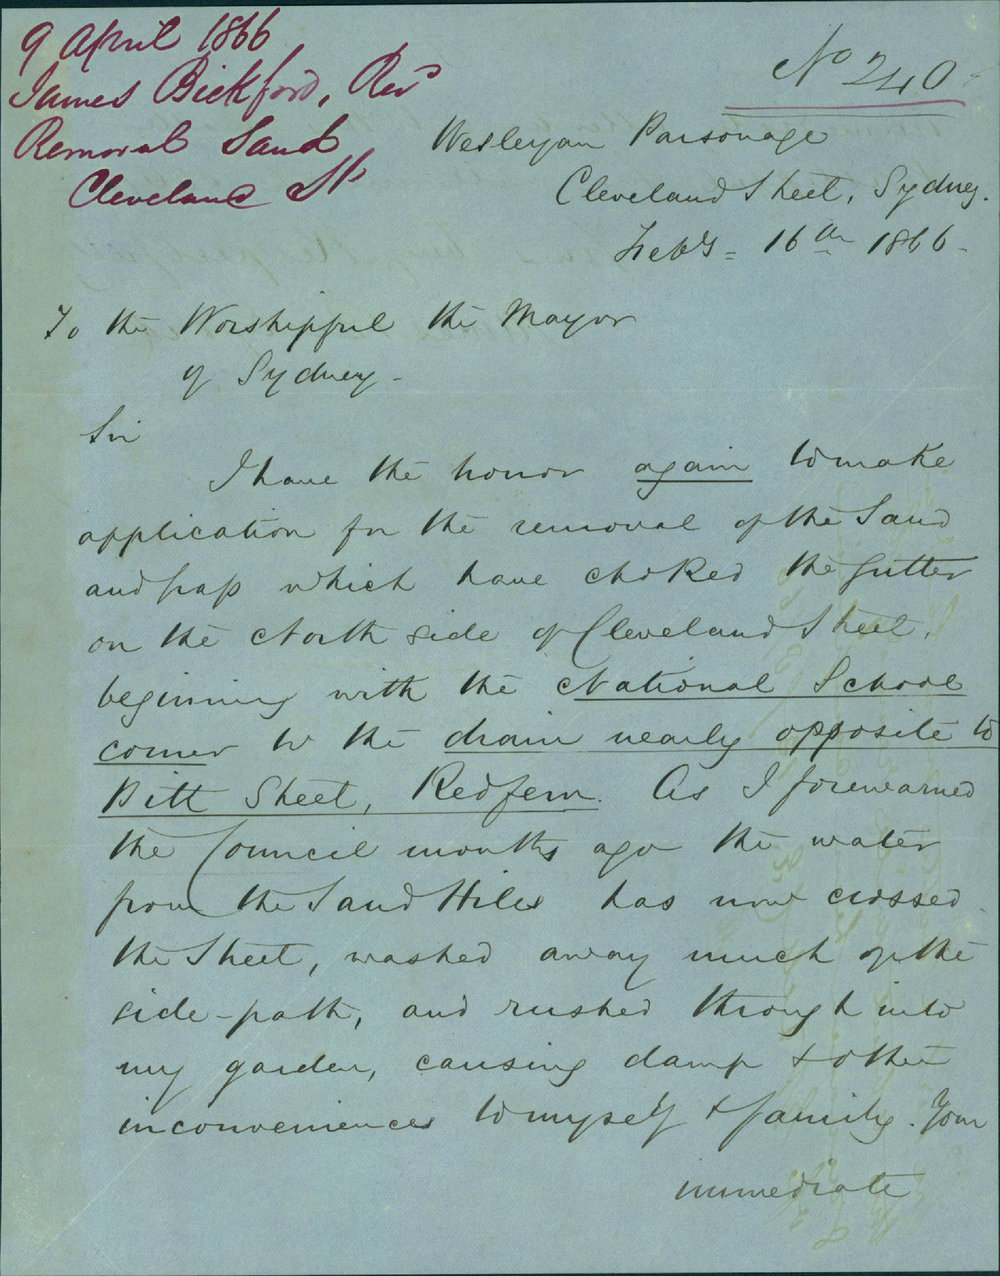 9 April 1866
James Bickford, Revd
Removal Sand
Cleveland St
No 240
Wesleyan Parsonage
Cleveland Street, Sydney.
Feby = 16th 1866 -
To the Worshipful the Mayor
of Sydney -
Sir
I have the honor again to make
application for the removal of the Sand
and grass which have choked the Gutter
on the North side of Cleveland Street,
beginning with the National School
corner to the drain nearly opposite to
Pitt Street, Redfern. As I forewarned
the Council months ago the water
from the Sand Hills has now crossed
the Street, washed away much of the
side-path, and rushed through into
my garden, causing damp & other
inconveniences to myself & family. Your
immediate